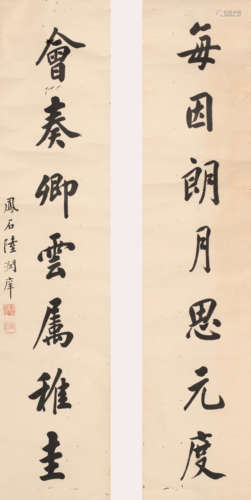 每因朗月思元度
會奏卿雲属稚圭
鳳石陸潤庠